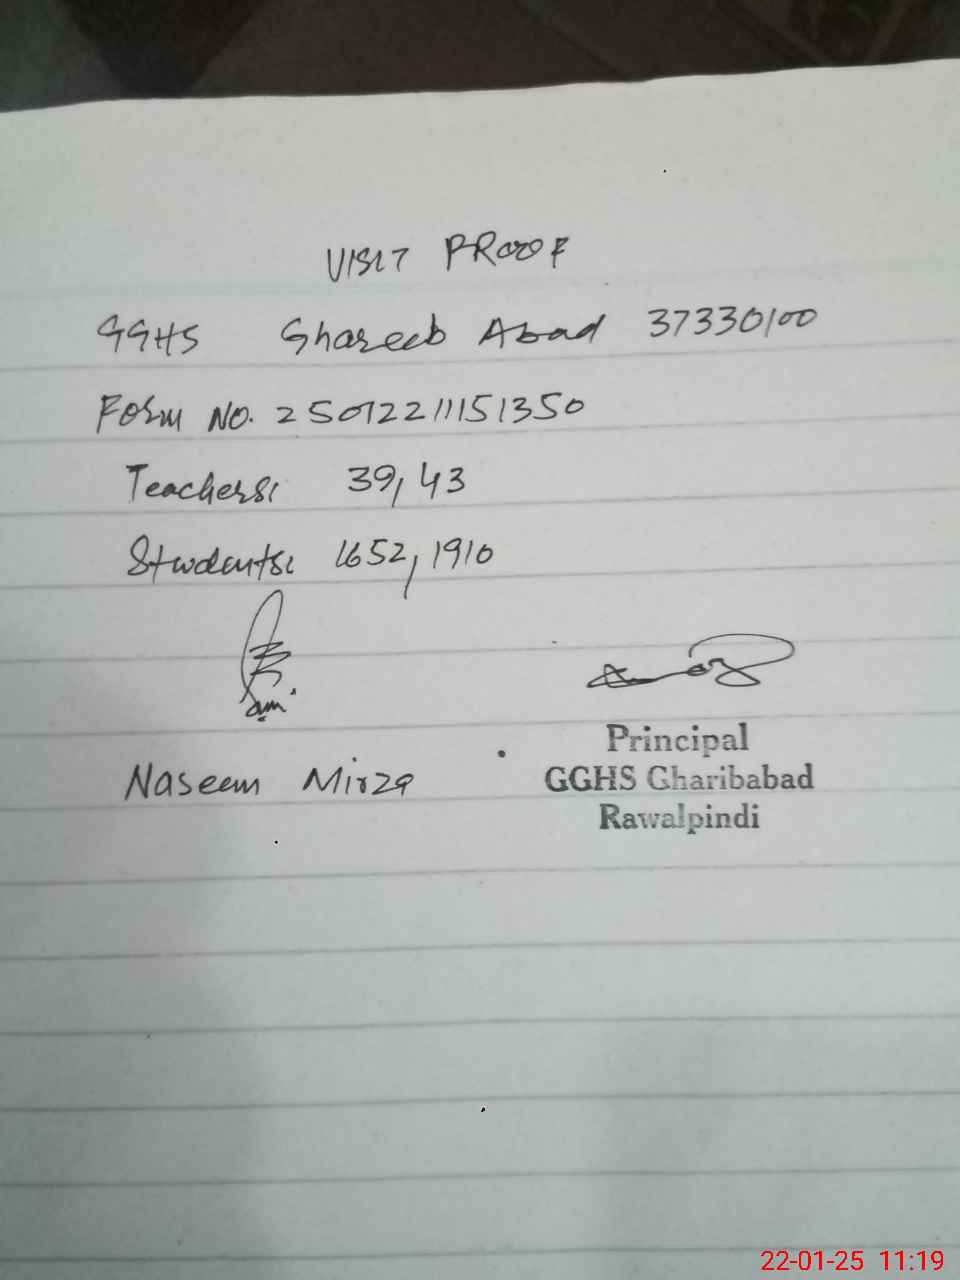 VISIT PROOF
GGHS Ghareeb Abad 37330100
Form NO. 25012211151350
Teachers: 39, 43
Students: 1652, 1910
Naseem Mirza
Principal
GGHS Gharibabad
Rawalpindi
22-01-25 11:19